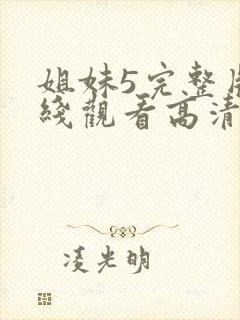 姐妹5完整
綫觀看高清
凌光明